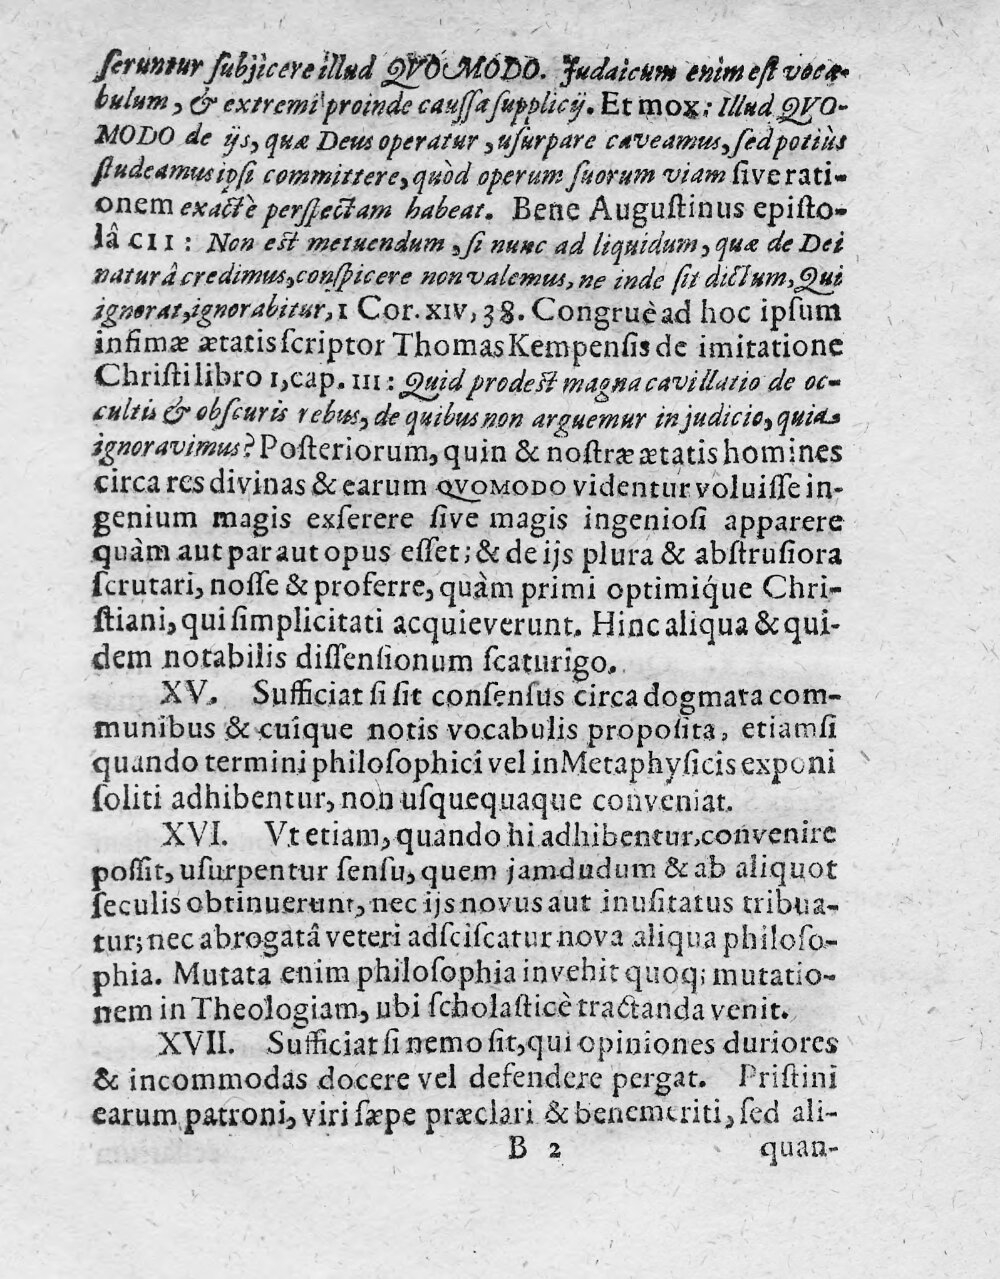 ſeruntur ſubjicere illud QVOMODO. Judaicum enim eſt voca-
bulum, & extremi proinde cauſſa ſupplicij. Et mox: Illud QVO-
MODO de ijs, quæ Deus operatur, uſurpare caveamus, ſed potiùs
ſtudeamus ipſi committere, quòd operum ſuorum viam ſive rati-
onem exactè perſpectam habeat. Bene Auguſtinus epiſto-
lâ CII: Non eſt metuendum, ſi nunc ad liquidum, quæ de Dei
naturâ credimus, conſpicere non valemus, ne inde ſit dictum, Qui
ignorat, ignorabitur, 1 Cor. XIV, 38. Congruè ad hoc ipſum
infimæ ætatis ſcriptor Thomas Kempenſis de imitatione
Chriſti libro 1, cap. III: Quid prodeſt magna cavillatio de oc-
cultis & obſcuris rebus, de quibus non arguemur in judicio, quia
ignoravimus? Poſteriorum, quin & noſtræ ætatis homines
circa res divinas & earum QVOMODO videntur voluiſſe in-
genium magis exſerere ſive magis ingenioſi apparere
quàm aut par aut opus eſſet; & de ijs plura & abſtruſiora
ſcrutari, noſſe & proferre, quàm primi optimiq́ue Chri-
ſtiani, qui ſimplicitati acquieverunt. Hinc aliqua & qui-
dem notabilis diſſenſionum ſcaturigo.
XV. Sufficiat ſi ſit conſenſus circa dogmata com-
munibus & cuîque notis vocabulis propoſita, etiamſi
quando termini philoſophici vel in Metaphyſicis exponi
ſoliti adhibentur, non uſquequaque conveniat.
XVI. Vt etiam, quando hi adhibentur, convenire
poſſit, uſurpentur ſenſu, quem jamdudum & ab aliquot
ſeculis obtinuerunt, nec ijs novus aut inuſitatus tribua-
tur; nec abrogatâ veteri adſciſcatur nova aliqua philoſo-
phia. Mutata enim philoſophia invehit quoq; mutatio-
nem in Theologiam, ubi ſcholaſticè tractanda venit.
XVII. Sufficiat ſi nemo ſit, qui opiniones duriores
& incommodas docere vel defendere pergat. Priſtini
earum patroni, viri ſæpe præclari & benemeriti, ſed ali-
B 2 quan-